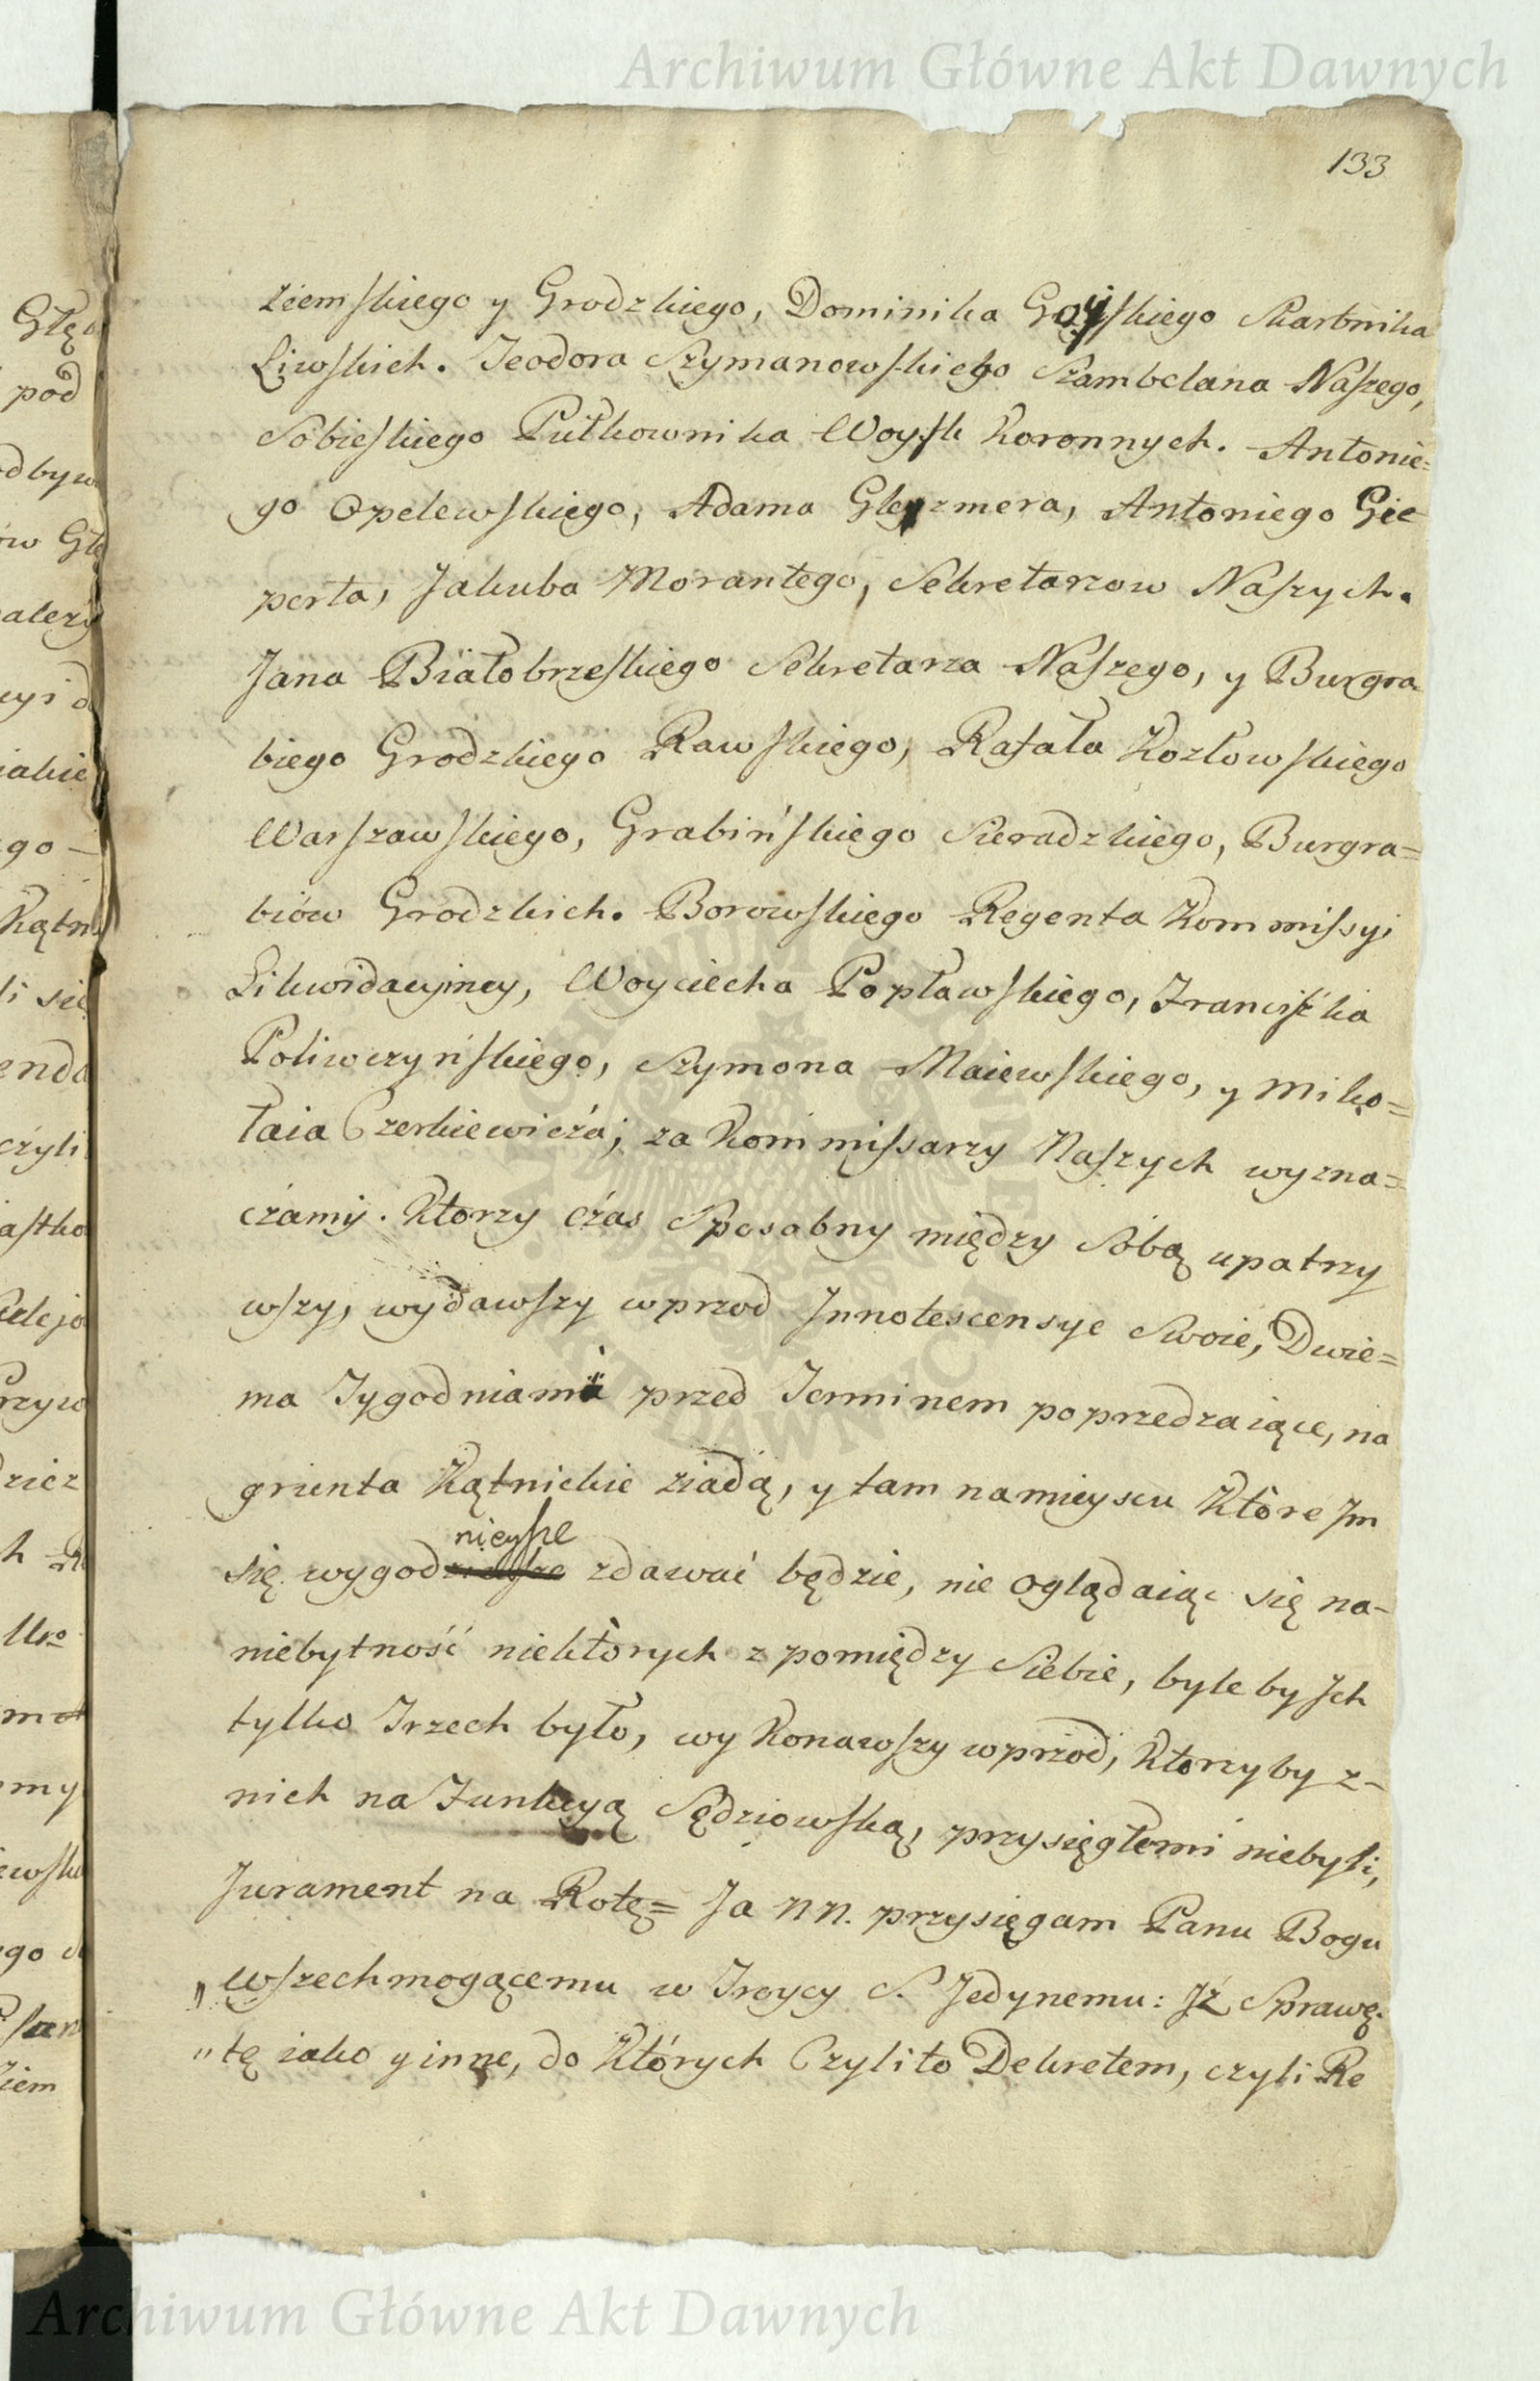 Archiwum Główne Akt Dawnych
133
Ziemskiego y Grodzkiego, Dominika Goyskiego Skarbnika
Liwskich. Teodora Szymanowskiego Szambelana Naszego,
Sobieskiego Pułkownika Woysk Koronnych. Antonie=
go Opelewskiego, Adama Gleyzmera, Antoniego Gie
perta, Jakuba Morantego, Sekretarzow Naszych.
Jana Białobrzeskiego Sekretarza Naszego, y Burgra
biego Grodzkiego Rawskiego, Rafała Kozłowskiego
Warszawskiego, Grabińskiego Sieradzkiego, Burgra=
biów Grodzkich. Borowskiego Regenta Kommissyi
Likwidacyiney, Woyciecha Popławskiego, Franciszka
Poliwczyńskiego, Szymona Maiewskiego, y Miko=
łaia Czerkiewicza; za Kommissarzy Naszych wyzna=
czamy. Ktorzy czas Sposobny między Sobą upatrzy
wszy, wydawszy wprzod Innotescensye Swoie, Dwie=
ma Tygodniami przed Terminem poprzedzaiące, na
grunta Kątnickie ziadą, y tam na mieyscu Które Im
nieysze
się wygod zdawać będzie, nie oglądaiąc się na-
niebytność niektòrych z pomiędzy Siebie, byle by Ich
tylko Trzech było, wykonawszy wprzod, Ktorzyby z-
nich na Funkcyą Sędziowską, przysięgłemi niebyli,
Jurament na Rotę= Ja NN. przysięgam Panu Bogu
„Wszechmogącemu w Troycy S. Jedynemu: Iż Sprawę.
„tę iako y inne, do Których Czyli to Dekretem, czyli Re
Archiwum Główne Akt Dawnych